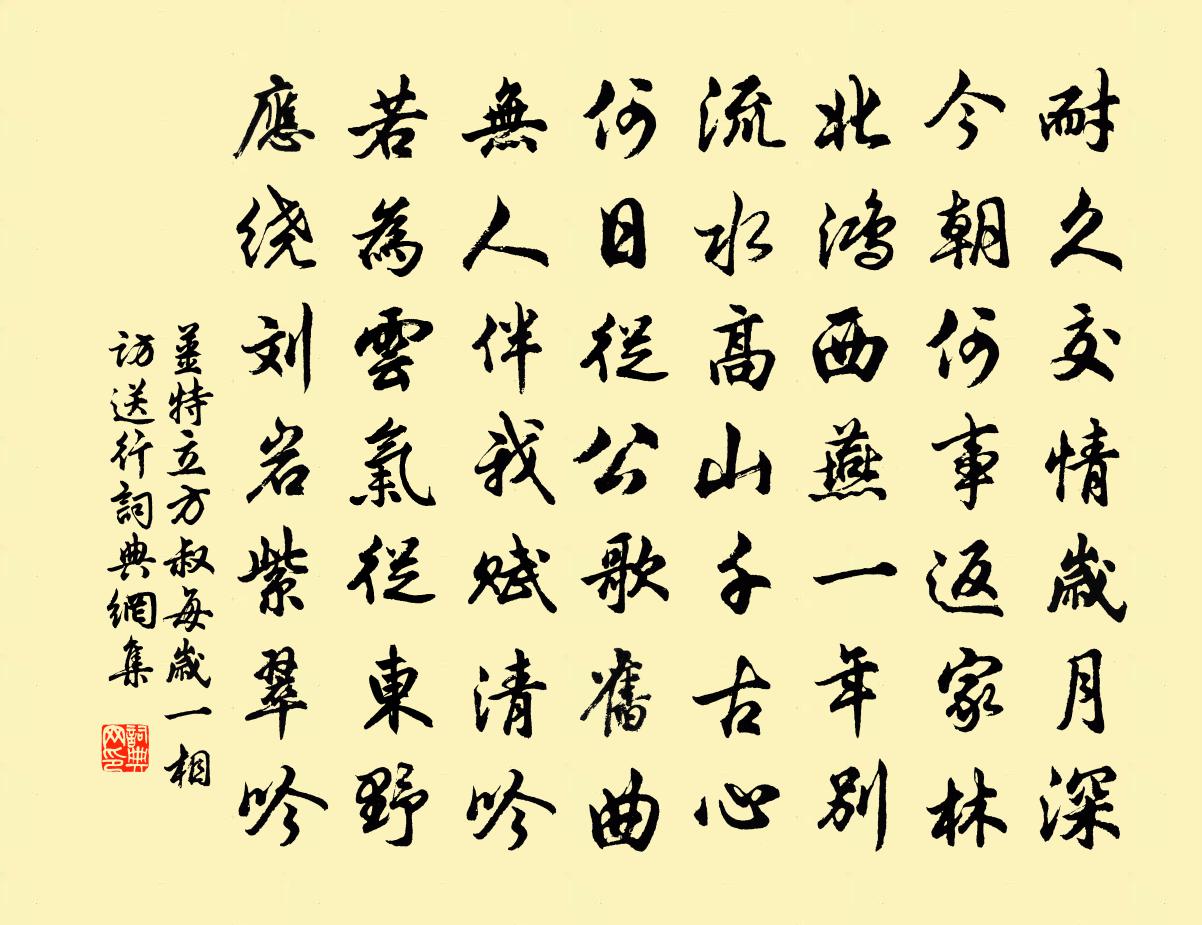 耐久交情歲月深
今朝何事返家林
北鴻西燕一年別
流水高山千古心
何日從公歌舊曲
無人伴我賦清吟
若為雲氣從東野
應绕刘岩紫翠吟
姜特立方叔每歲一相
訪送行詞典網集
詞典網印